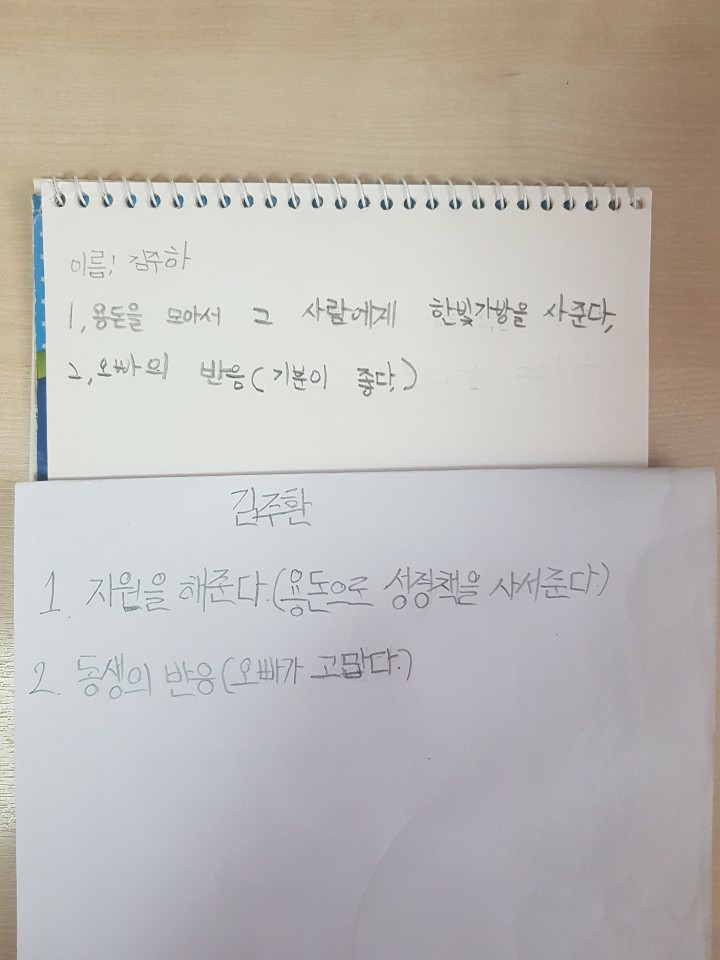 이름! 김주하
1, 용돈을 모아서 그 사람에게 한빛가방을 사준다,
2, 오빠의 반응(기분이 좋다,)
김주환
1. 지원을 해준다.(용돈으로 성경책을 사서준다.)
2. 동생의 반응(오빠가 고맙다.)